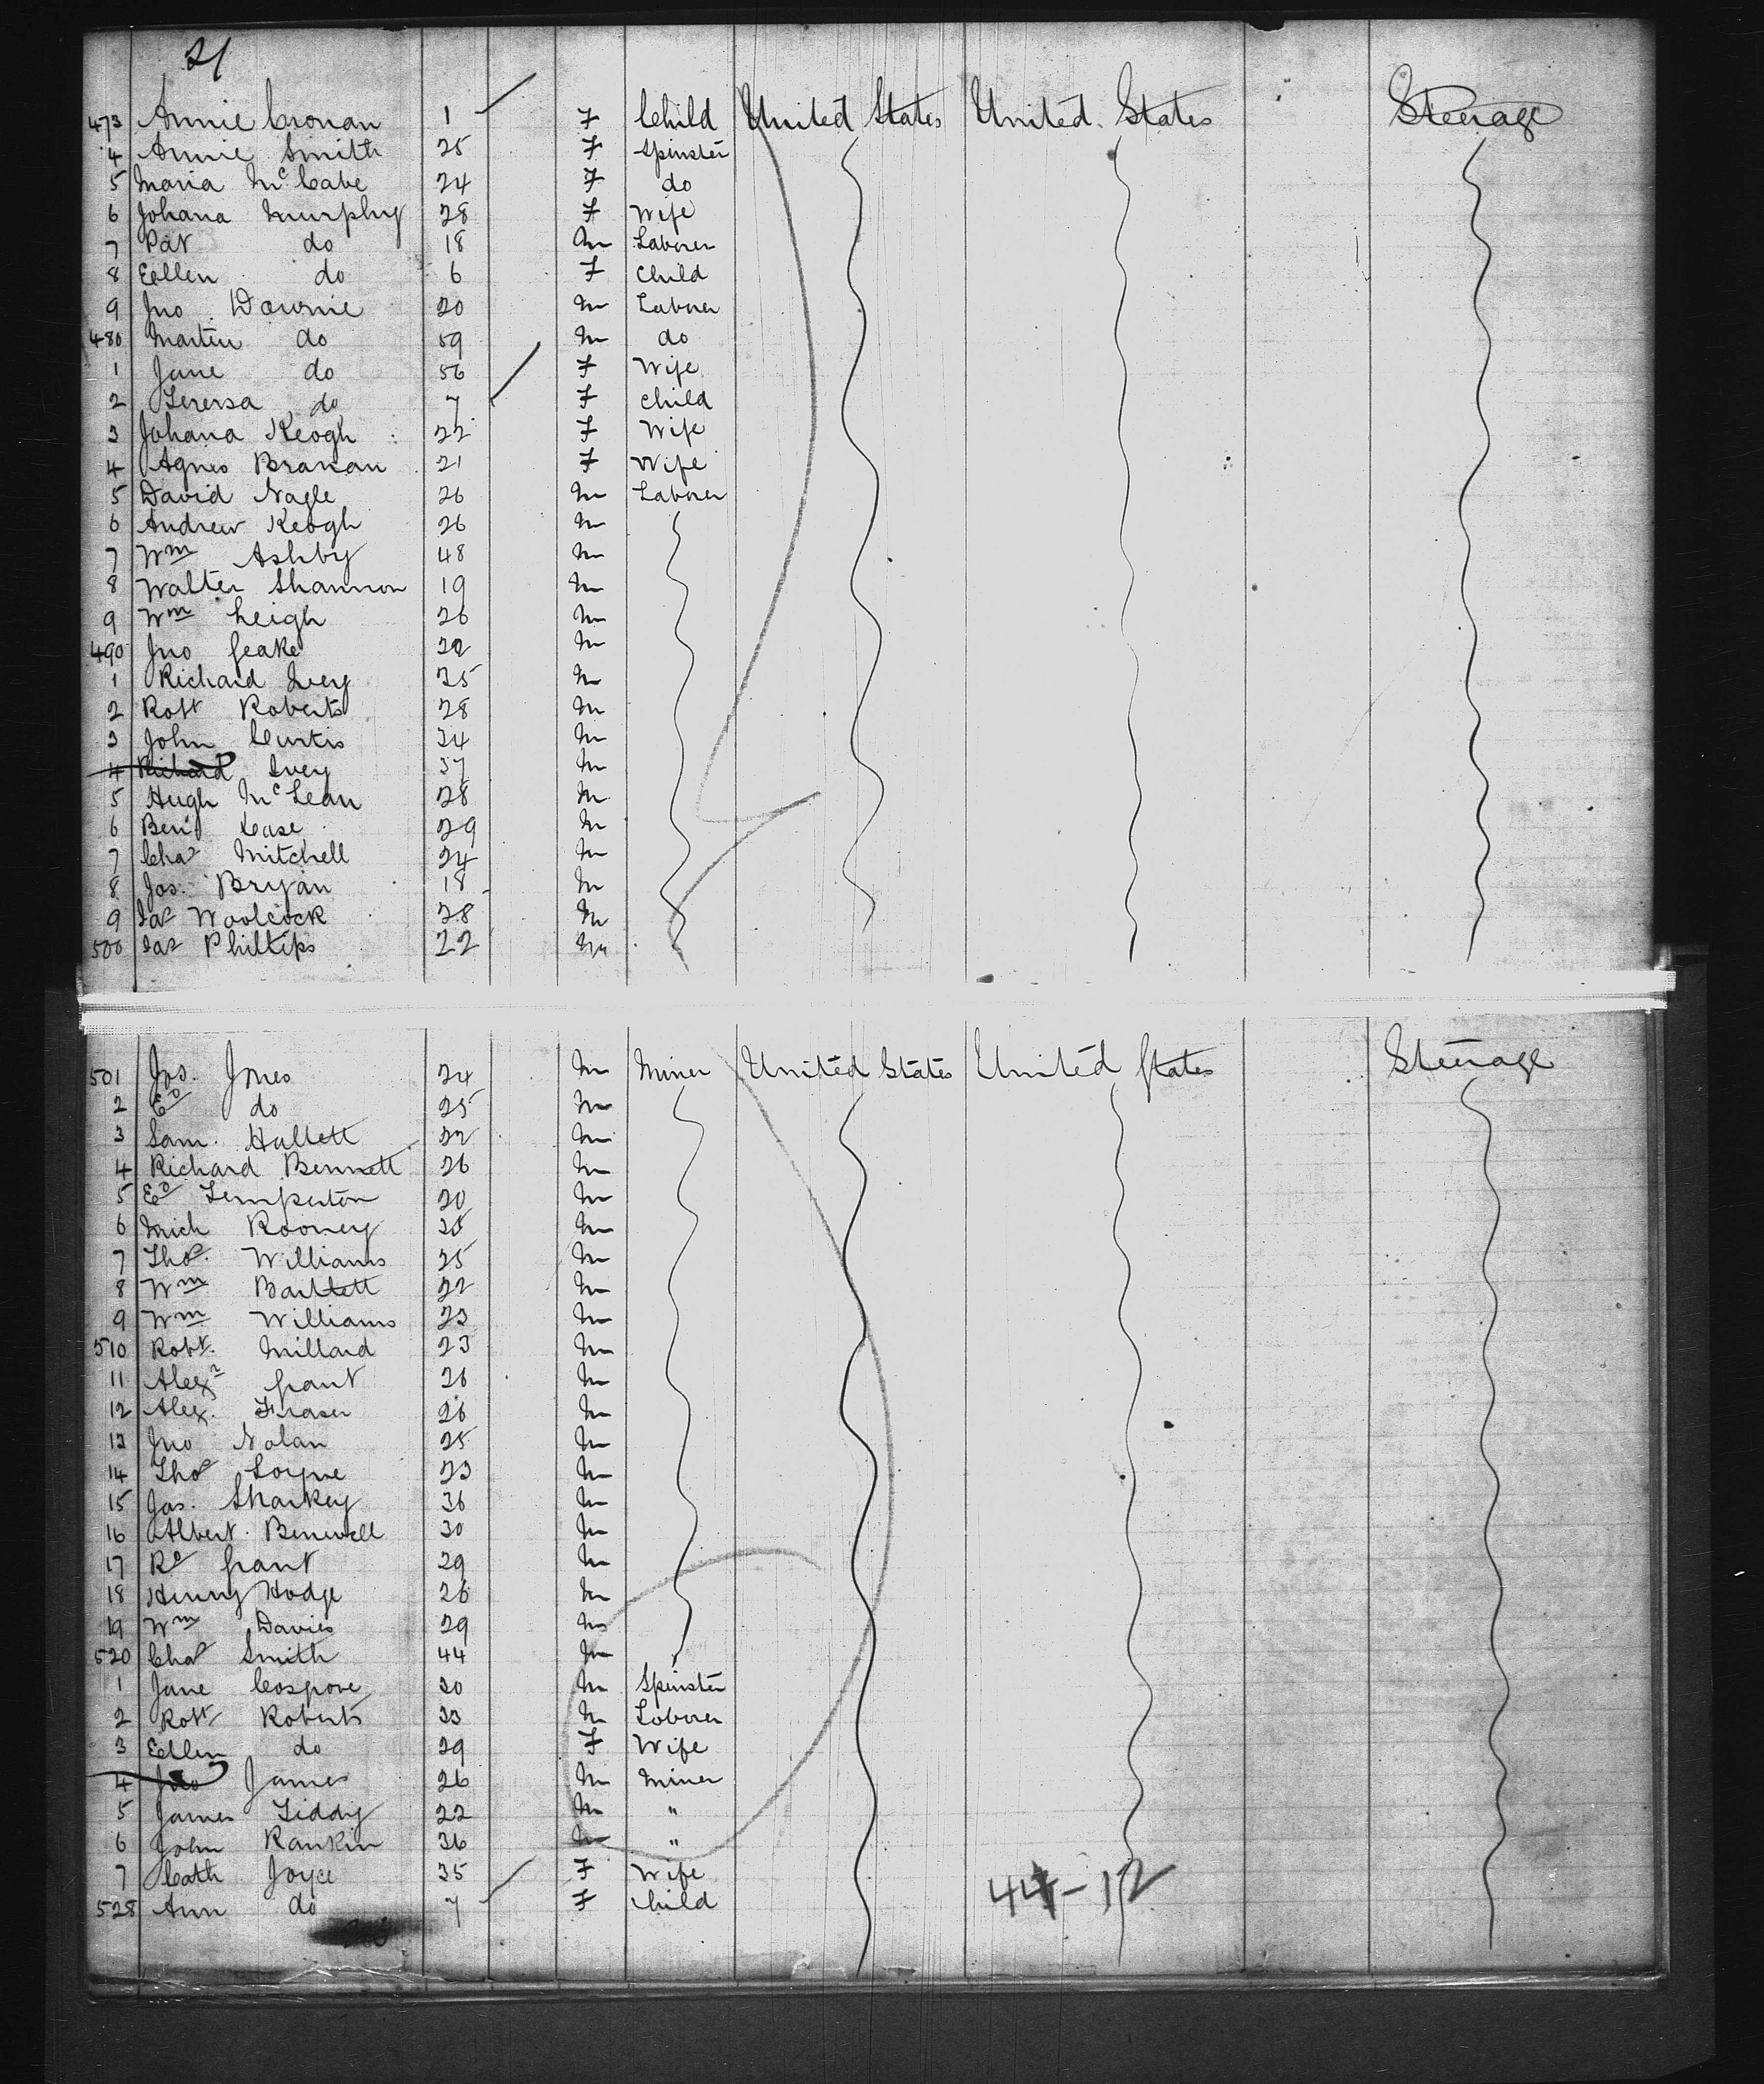 21
473 Annie Cronan 1 F Child United States United States Steerage
4 Annie Smith 25 F Spinster
5 Maria McCabe 24 F do
6 Johana Murphy 28 F Wife
7 Pat do 18 M Laborer
8 Eellen do 6 F Child
9 Jno Downie 20 M Laborer
480 Martin do 59 M do
1 Jane do 56 F Wife
2 Teresa do 7 F Child
3 Johana Keogh 22 F Wife
4 Agnes Branan 21 F Wife
5 David Nagle 26 M Laborer
6 Andrew Keogh 26 M
7 Wm Ashby 48 M
8 Walter Shannon 19 M
9 Wm Leigh 26 M
490 Jno Geake 22 M
1 Richard Ivey 25 M
2 Robt Roberts 28 M
3 John Curtis 24 M
4 Richard Ivey 37 M
5 Hugh McLean 28 M
6 Benj Case 29 M
7 Chas Mitchell 24 M
8 Jos. Bryan 18 M
9 Jas Woolcock 28 M
500 Jas Phillips 22 M
501 Jos. Jones 24 M Miner United States United States Steerage
2 Ed do 25 M
3 Sam. Hallett 22 M
4 Richard Bennett 26 M
5 Ed Temperton 20 M
6 Mich Rooney 25 M
7 Thos. Williams 25 M
8 Wm Bartlett 22 M
9 Wm Williams 23 M
510 Robt. Millard 23 M
11 Alexr Grant 26 M
12 Alex. Fraser 26 M
13 Jno Nolan 25 M
14 Thos 23 M
15 Jas. Sharkey 36 M
16 Albert Benewell 30 M
17 Rd Grant 29 M
18 Henry Hodge 26 M
19 Wm Davies 29 M
520 Chas Smith 44 M
1 Jane Cosgrove 20 M Spinster
2 Robt Roberts 33 M Laborer
3 Eellen do 29 F Wife
4 Jno James 26 M Miner
5 James Liddy 22 M "
6 John Rankin 36 M "
7 Cath Joyce 35 F Wife
528 Ann do 7 F Child
44-12